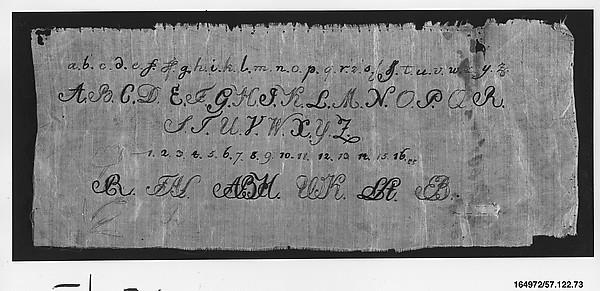 a. b. c. d. e. f. ff. g. h. i. k. l. m. n. o. p. q. r. z. s. ſ. t. u. v. w. y. z.
A. B. C. D. E. F. G. H. I. K. L. M. N. O. P. Q. R.
S. T. U. V. W. X. Y. Z.
1. 2. 3. 4. 5. 6. 7. 8. 9. 10. 11. 12. 13. 14. 15. 16.
UK.
164972/57.122.73